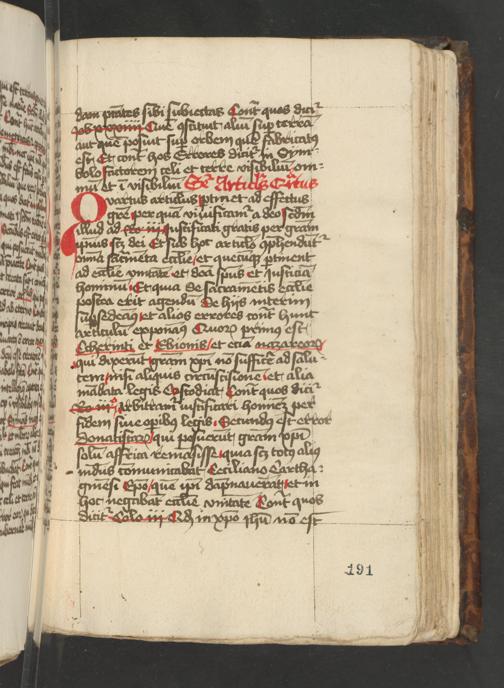 dam ptātes sibi subiectas Cont͛ quos dicit͛
Job xxxiiii Quē ꝯstituit aliū suꝑ terrā
aut quē posuit suꝑ orbem quē fabricatus
est Et cont͛ hos Errores dicit͛ in Sym-
bolo factorem celi et terre visibiliū om-
niū et ī visibiliū Articulus Quartus
Quartus articulus ꝑtinet ad effectus
gr̄e ꝑ quā viuificam͛ a deo scdm
illud ad Ro iii Justificati gratis ꝑ gram
ipsius scz dei Et sub hoc articulo ꝯphendūt͛
om̄ia sacramēta ecclie et quecūqꝫ ꝑtinent
ad ecclie vnitatē et dona spūs et Justiciā
hominū Et quia de sacramētis ecclie
postea erit agendū De hijs interim
suꝑsedeam͛ et alios errores contͣ hunc
articulū exponam͛ Quoꝝ primus est
Cherinti et Ebionis et etiā nazareoꝝ
qui dixerūt gram xpi nō sufficē ad salu-
tem nisi aliquis circūcisionē et alia
mandata legis Custodiat Cont͛ quos dicit͛
Ro iii Arbitram͛ iustificari hominē per
fidem sine opibus legis Secundus est error
donatistaꝝ qui posuerūt gram xpi
solū in affrica remansisse quia scz totus aliꝰ
mūdus comunicabat Ceciliano Cartha-
giniēsi Ep̄o quē ipi dāpnauerāt et in
hoc negabāt ecclie vnitatē Cont͛ quos
dicit͛ Colo iii Qd in xp̄o ihū nō est
191